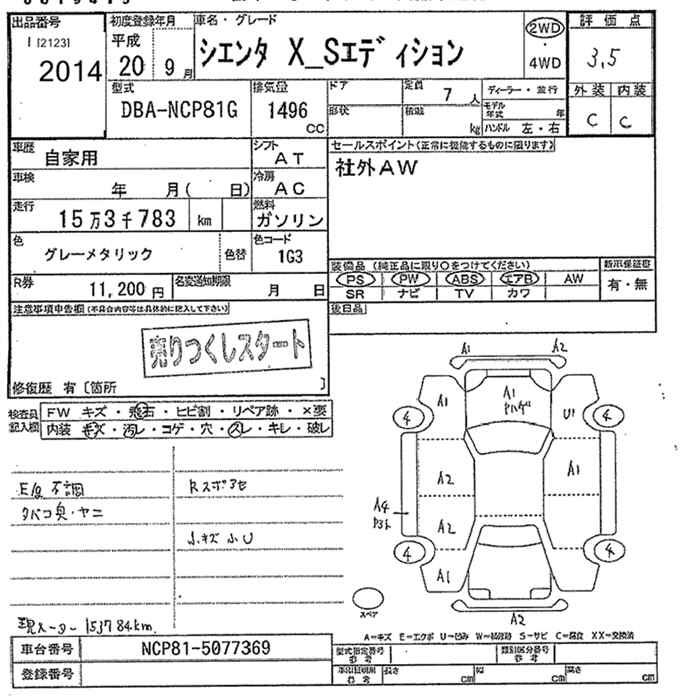 出品番号
I [2123]
2014
初度登録年月
平成
20 9月
車名・グレード
シエンタ X_Sエディション
2WD
・
4WD
評価点
3,5
外装 内装
C C
型式
DBA-NCP81G
排気量
1496
CC
ドア
形状
定員
7人
積載
kg
ディーラー・並行
モデル年式 年
ハンドル 左・右
車歴
自家用
シフト
AT
セールスポイント(正常に機能するものに限ります)
社外AW
車検
年 月( 日)
冷房
AC
走行
15万3千783 km
燃料
ガソリン
色
グレーメタリック
色替
色コード
1G3
装備品 (純正品に限り○をつけてください)
PS PW ABS エアB AW
SR ナビ TV カワ
新車保証書
有・無
R券
11,200円
名変通知期限
月 日
後日品
注意事項申告欄(不具合内容等は具体的に記入して下さい)
売りつくしスタート
修復歴 有〔箇所 〕
検査員記入欄
FW キズ・飛石・ヒビ割・リペア跡・×要
内装 キズ・汚レ・コゲ・穴・スレ・キレ・破レ
E/g 不調
タバコ臭・ヤニ
Rスポアセ
小キズ小U
現メーター 153784km
A1 A2
A1 A1 U1
4 4
A2 A1
A4
A2
4 4
A1
スペア
A2
A=キズ E=エクボ U=凹み W=補修跡 S=サビ C=腐食 XX=交換済
車台番号
NCP81-5077369
登録番号
型式指定番号
参考
類別区分番号
参考
長さ cm
幅 cm
高さ cm